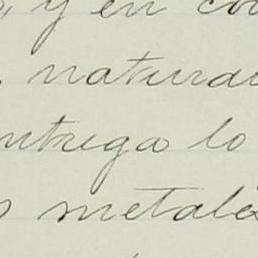 y en co
natura
ntrega lo
s metale